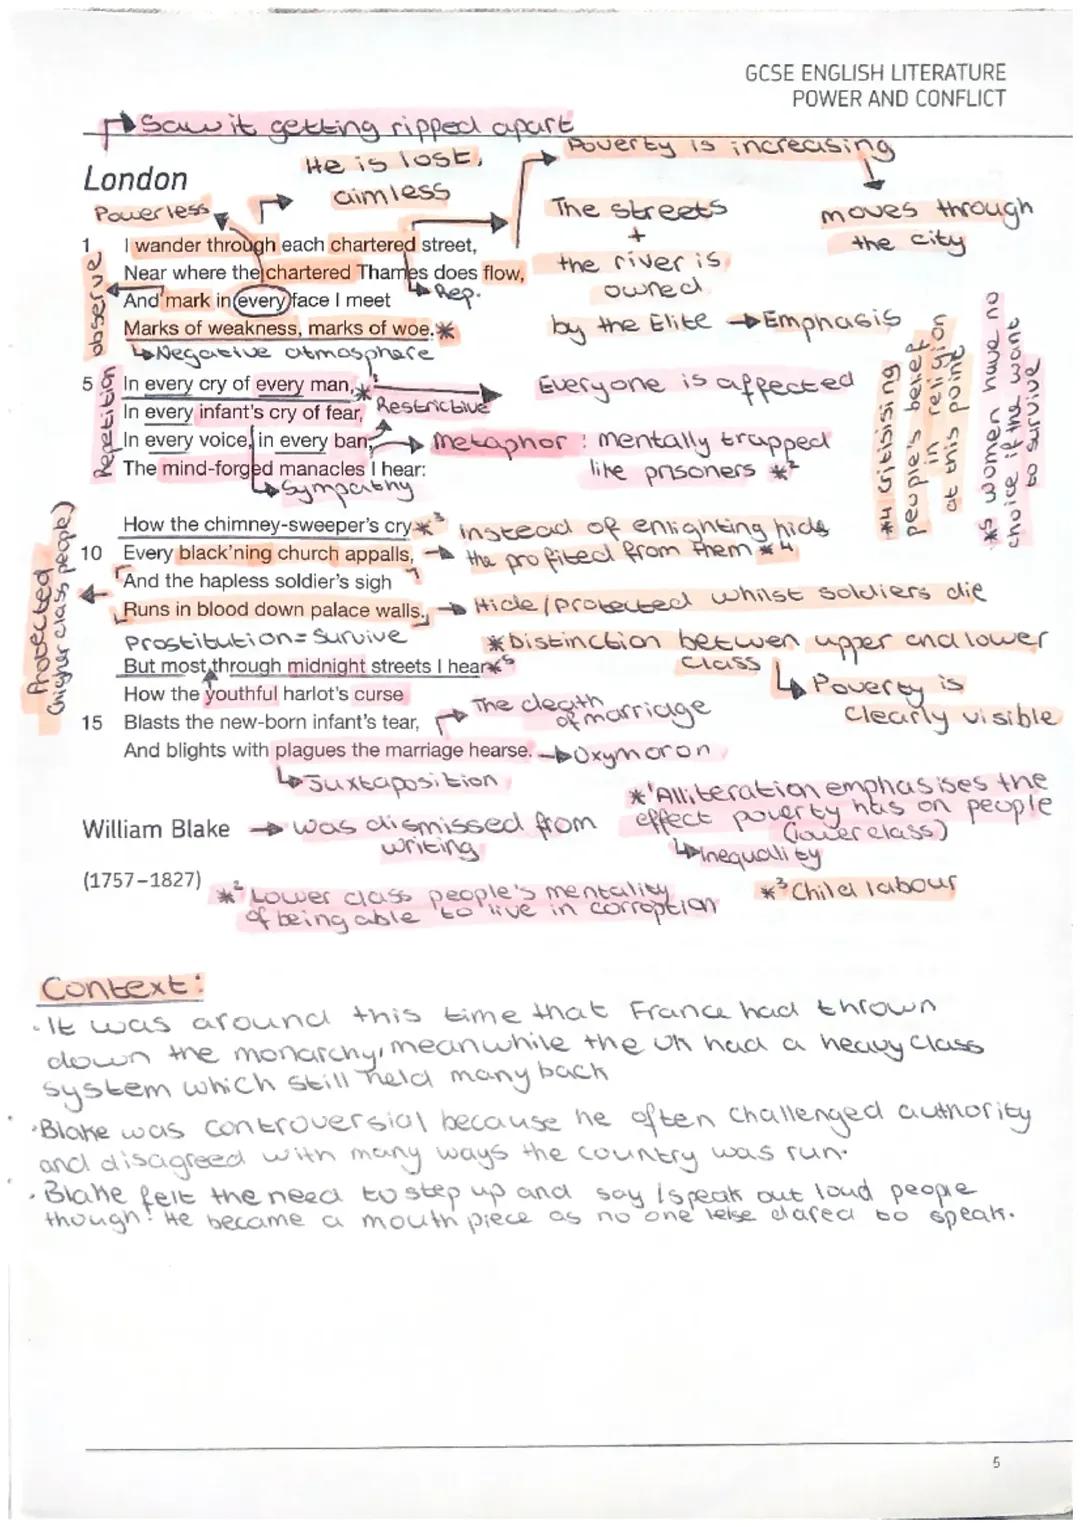 GCSE ENGLISH LITERATURE
POWER AND CONFLICT
Saw it getting ripped apart
London
He is lost,
aimless
Poverty is increasing
moves through
the city
Powerless
The streets
+
the river is
owned
by the Elite → Emphasis
1 I wander through each chartered street,
Near where the chartered Thames does flow,
And mark in every face I meet
Rep.
Marks of weakness, marks of woe.*
observe
Negative atmosphere
5 In every cry of every man,*1
Everyone is affected
In every infant's cry of fear,
Restrictive
In every voice, in every ban,
metaphor : mentally trapped
like prisoners *2
The mind-forged manacles I hear:
Sympathy
Repetition
*4 critisising
people's belief
in religion
at this point
*5 women have no
choice if the want
to survive
How the chimney-sweeper's cry *3
instead of enlighting hids
10 Every black'ning church appalls,
the profited from them *4
And the hapless soldier's sigh
Runs in blood down palace walls.
Hide/protected whilst soldiers die
Protected
(higher class people)
Prostitution = Survive
*Distinction betwen upper and lower
class
Poverty is
clearly visible
But most through midnight streets I hear *5
How the youthful harlot's curse
The death
of marriage
15 Blasts the new-born infant's tear,
And blights with plagues the marriage hearse.
Oxymoron
Juxtaposition
*1 Alliteration emphasises the
effect poverty has on people
(lower class)
Inequality
William Blake → was dismissed from
writing
(1757–1827)
*2 Lower class people's mentality
of being able to live in corroption
*3 Child labour
Context:
• It was around this time that France had thrown
down the monarchy, meanwhile the UK had a heavy class
system which still held many back
• Blake was controversial because he often challenged authority
and disagreed with many ways the country was run.
• Blake felt the need to step up and say /speak out loud people
though! He became a mouth piece as no one else dared to speak.
5